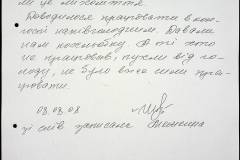 ми це лихоліття.
Доводилося працювати в кол-
госпі напівголодним. Давали
нам похльобку. А ті хто
не працював, пухли від го-
лоду, не було в них сили пра-
цювати.
08.08.08
зі слів записала